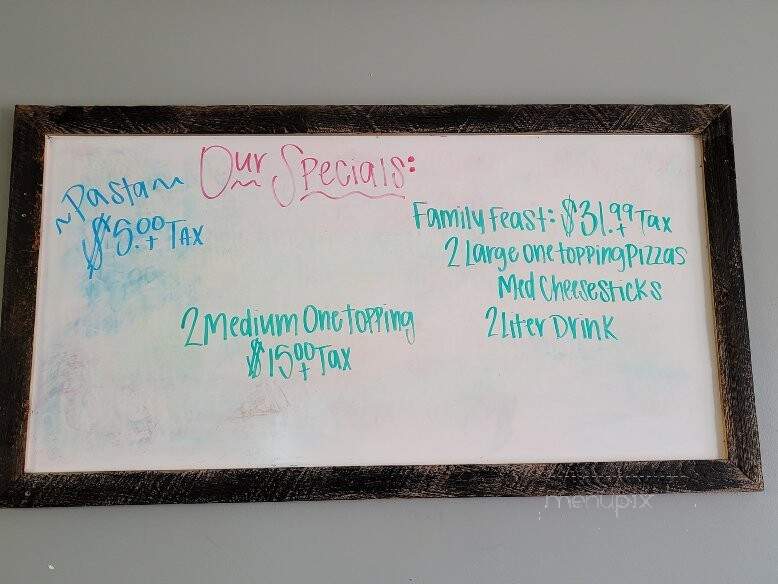 Our Specials:
~Pasta~
$5.00 + Tax
Family Feast: $31.99 + Tax
2 Large one topping Pizzas
Med Cheesesticks
2 Liter Drink
2 Medium One topping
$15.00 + Tax
menupix